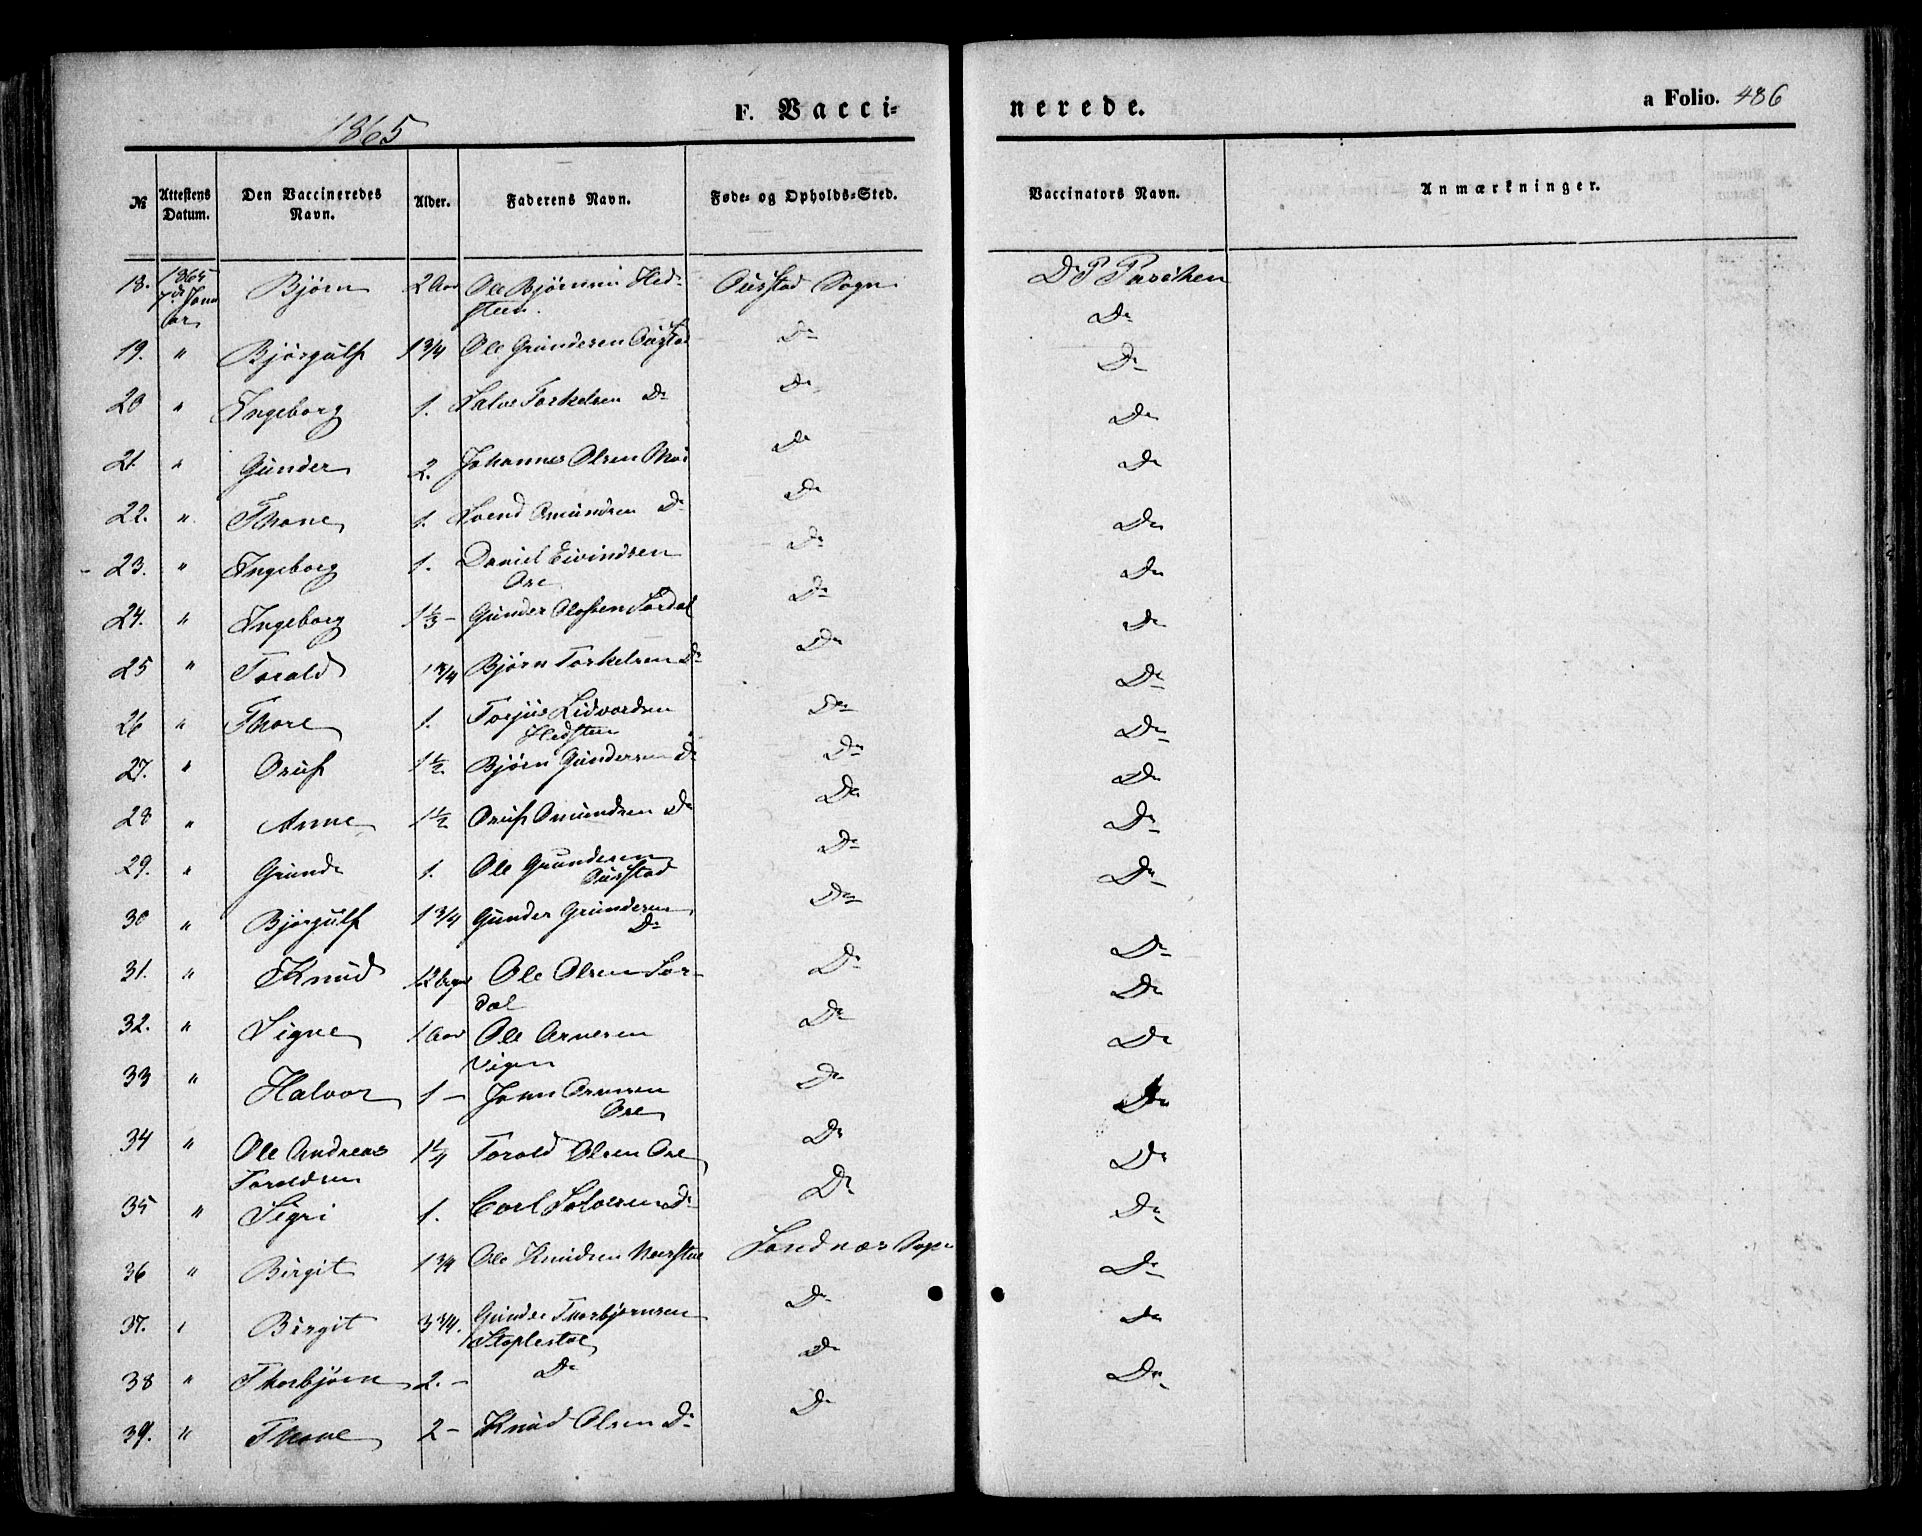 1865
F. Vacci-
nerede.
a Folio. 486
№ Attestens Datum. Den Vaccineredes Navn. Alder. Faderens Navn. Føde- og Opholds-Sted. Vaccinators Navn. Anmærkninger.
18. 1865 Bjørn 2 Aar Ole Bjørnsen Hed- Ourstad Sogn
steen.
19. " Bjørgulf 1 3/4 Ole Grundesen Ourstad Do Do
20 " Ingeborg 1. Salve Torkelsen Do Do Do
21. " Gunder 2. Johannes Olsen Moi Do Do
22. " Thone 1. Svend Omundsen Do Do Do
23. " Ingeborg 1. Daniel Eivindsen Do Do
Ose
24. " Ingeborg 1 1/3 - Gunder Olafsen Sordal Do Do
25 " Torald 1 3/4 Bjørn Torkelsen Do Do Do
26 " Thore 1. Torjus Lidvordsen Do Do
Hedsteen
27. " Osuf 1 1/2. Bjørn Gundersen Do Do Do
28 " Anne 1 1/2 Osuf Omundsen Do Do Do
29. " Grunde 1. Ole Grundesen Do Do
Ourstad
30 " Bjørgulf 1 3/4 Gunder Grundesen Do Do
Do
31. " Knud 12 Ole Olsen Sor- Do Do
dal
32. " Signe 1 Aar Ole Arnesen Do Do
Vigen
33 " Halvor 1 - Do Do
Ose
34 " Ole Andreas 1 1/4 Torald Olsen Ose Do Do
Toraldsen
35 " Sigri 1. Carl Salvesen Do Do Do
36 " Birgit 1 3/4 Ole Knudsen Sandnæs Sogn Do
37. " Birgit 3 3/4. Gunder Thorbjørnsen Do Do
Stoplestøl
38 " Thorbjørn 2. - Do Do Do
39. " Thone 2 - Knud Olsen Do Do